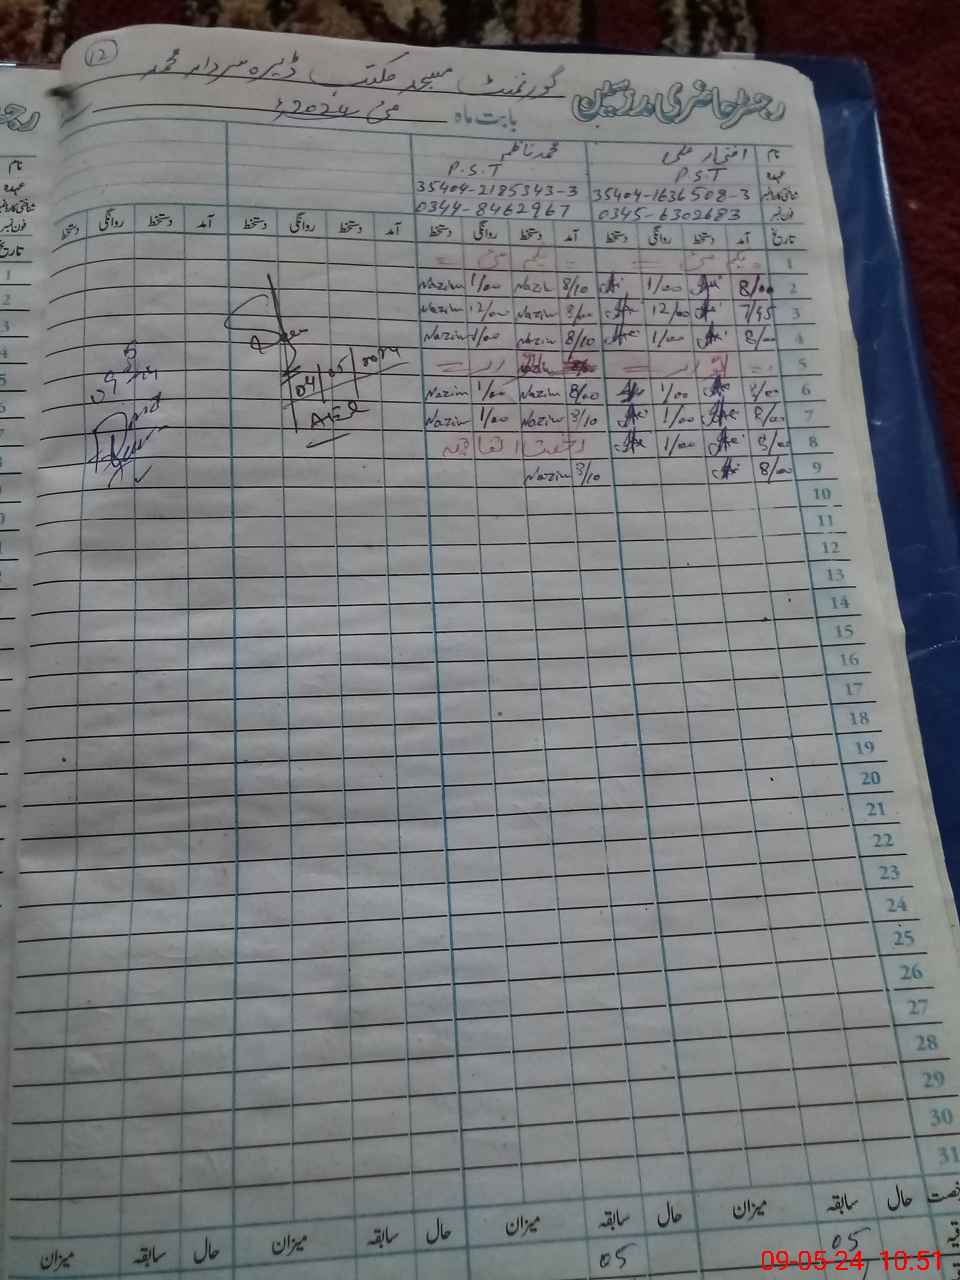 12
گورنمنٹ مسجد مکتب ڈیرہ سردار محمد
رجسٹر حاضری مدرسین
بابت ماہ مئی 2024ء
نام افتخار علی محمد ناظم
عہدہ P.S.T P.S.T
شناختی کارڈ نمبر 35404-1636508-3 35404-2185343-3
فون نمبر 0345-6302683 0344-8462967
تاریخ آمد دستخط روانگی دستخط آمد دستخط روانگی دستخط آمد دستخط روانگی دستخط آمد دستخط روانگی دستخط
1 یکم مئی یکم مئی
2 8/00 1/00 8/10 Nazim 1/00 Nazim
3 7/45 12/00 8/00 Nazim 12/00 Nazim
4 8/00 1/00 8/10 Nazim 1/00 Nazim
5 اتوار
6 8/00 1/00 8/00 Nazim 1/00 Nazim
7 8/00 1/00 8/10 Nazim 1/00 Nazim
8 8/00 1/00 رخصت اتفاقیہ
9 8/00 8/10 Nazim
04/05/2024
AEO
10
11
12
13
14
15
16
17
18
19
20
21
22
23
24
25
26
27
28
29
30
31
حال سابقہ میزان حال سابقہ میزان حال سابقہ میزان حال سابقہ میزان
05 05
09-05-24 10:51